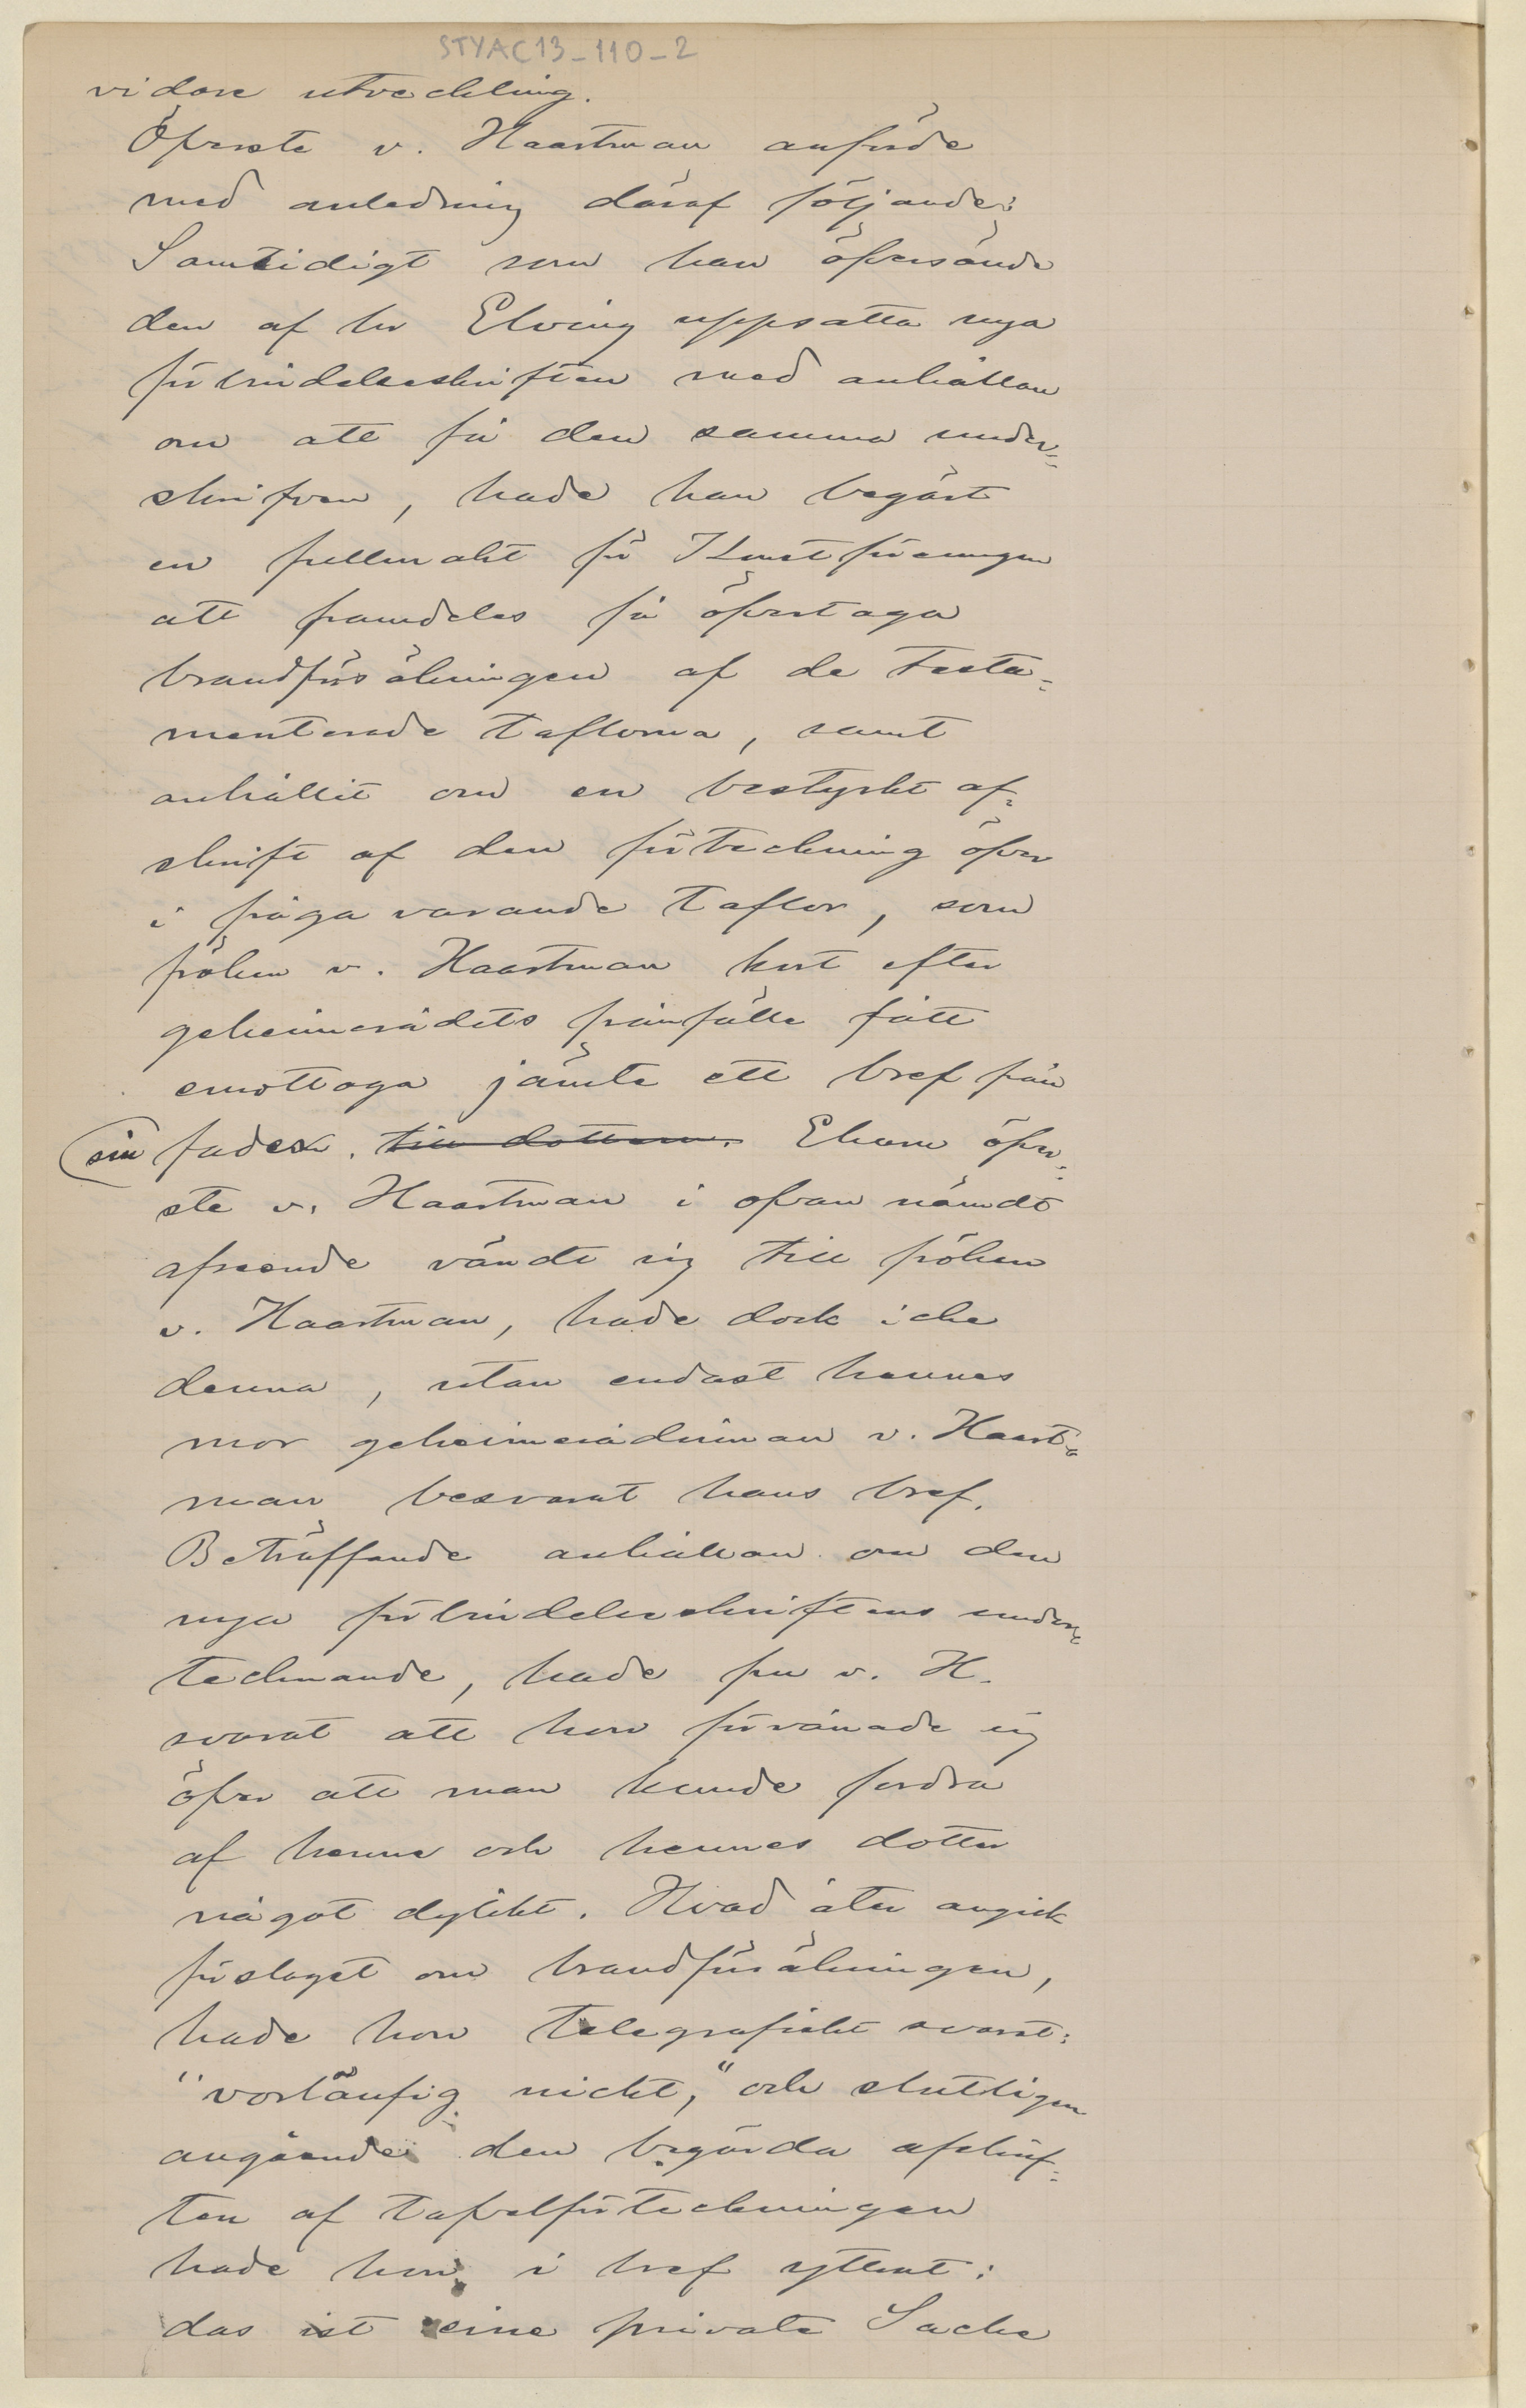 STYAC13_110_2
vidare utveckling.
Öfverste v. Haartman anförde
med anledning däraf följande:
Samtidigt som han öfversände
den af hr Elving uppsatta nya
förbindelseskriften med anhållan
om att få den samma under-
skrifven, hade han begärt
en fullmakt för Konstföreningen
att framdeles få öfvertaga
brandförsäkringen af de testa-
menterade taflorna, samt
anhållit om en bestyrkt af-
skrift af den förteckning öfver
i fråga varande taflor, som
fröken v. Haartman kort efter
geheimerådets frånfälle fått
emottaga jämte ett bref från
sin fader. till dottern. Ehuru öfver-
ste v. Haartman i ofvan nämndt
afseende vändt sig till fröken
v. Haartman, hade dock icke
denna, utan endast hennes
mor geheimerådinnan v. Haart-
man besvarat hans bref.
Beträffande anhållan om den
nya förbindelseskriftens under-
tecknande, hade fru v. H.
svarat att hon förvånade sig
öfver att man kunde fordra
af henne och hennes dotter
något dylikt. Hvad åter angick
förslaget om brandförsäkringen,
hade hon telegrafiskt svarat:
"vorläufig nicht," och slutligen
angående den begärda afskrif-
ten af tafvelförteckningen
hade hon i bref yttrat:
das ist eine private Sache